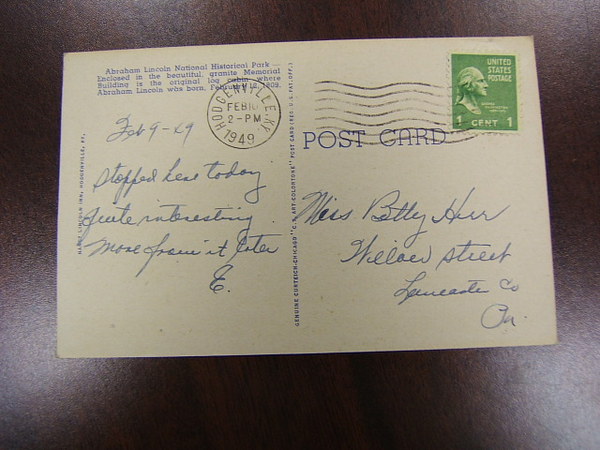 Abraham Lincoln National Historical Park —
Enclosed in the beautiful, granite Memorial
Building is the original log cabin where
Abraham Lincoln was born, February 12, 1809.
HODGENVILLE, KY.
FEB 10
2-PM
1949
UNITED
STATES
POSTAGE
1 CENT 1
POST CARD
Feb 9-49
stopped here today
Quite interesting
More from it later
E.
Miss Betty Herr
Street
Lancaster Co
Pa.
NANCY LINCOLN INN, HODGENVILLE, KY.
GENUINE CURTEICH-CHICAGO "C. T. ART-COLORTONE" POST CARD (REG. U.S. PAT. OFF.)